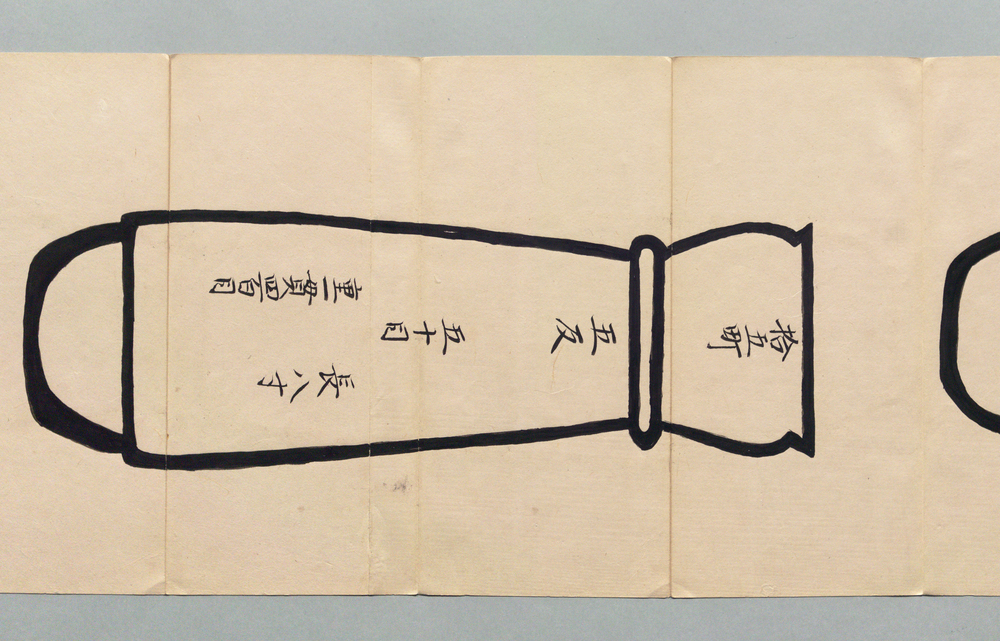 拾五町
五反
五十目
長八寸
重一貫四百目